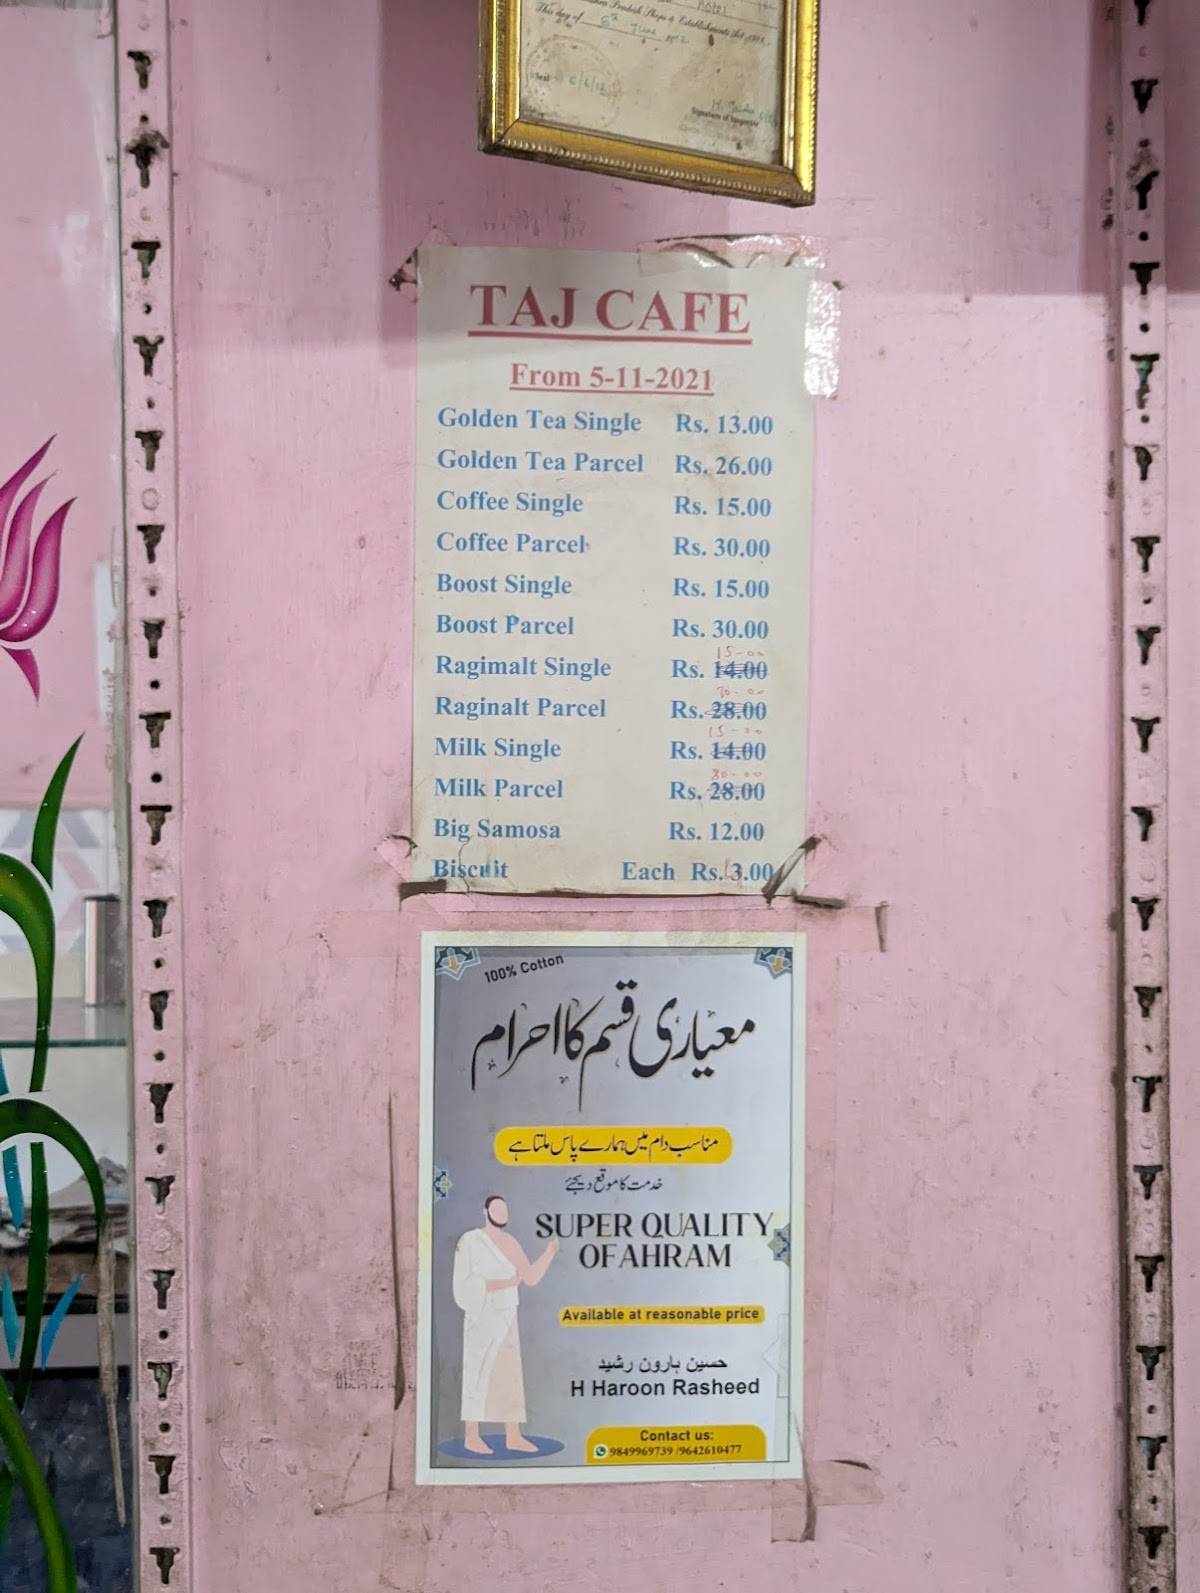 Pradesh Shops & Establishments Act, 1988.
This day of 5th June
Seal 6/6/12
Signature of Inspector
TAJ CAFE
From 5-11-2021
Golden Tea Single Rs. 13.00
Golden Tea Parcel Rs. 26.00
Coffee Single Rs. 15.00
Coffee Parcel Rs. 30.00
Boost Single Rs. 15.00
Boost Parcel Rs. 30.00
15-00
Ragimalt Single Rs. 14.00
30-00
Raginalt Parcel Rs. 28.00
15-00
Milk Single Rs. 14.00
30-00
Milk Parcel Rs. 28.00
Big Samosa Rs. 12.00
Biscuit Each Rs. 3.00
100% Cotton
معیاری قسم کا احرام
مناسب دام میں ہمارے پاس ملتا ہے
خدمت کا موقع دیجئے
SUPER QUALITY
OF AHRAM
Available at reasonable price
حسین ہارون رشید
H Haroon Rasheed
Contact us:
9849969739 /9642610477